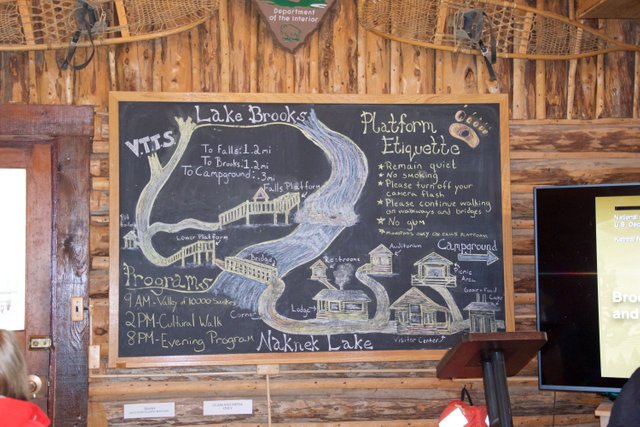 Department
of the Interior
LAKE BROOKS
V.T.T.S.
To Falls: 1.2 mi
To Brooks: 1.2 mi
To Campground: .3 mi
Falls Platform
Lower Platform
Bridge
Platform
Etiquette
★Remain quiet
★No smoking
★Please turn off your
camera flash
★Please continue walking
on walkways and bridges
★No gum
Programs
9 AM-Valley of 10,000 Smokes
2 PM-Cultural Walk
8 PM-Evening Program
Corner
Lodge
Restrooms
Auditorium
Campground
Picnic
Area
Visitor Center
Naknek Lake
National
U.S. Dep
Bro
and